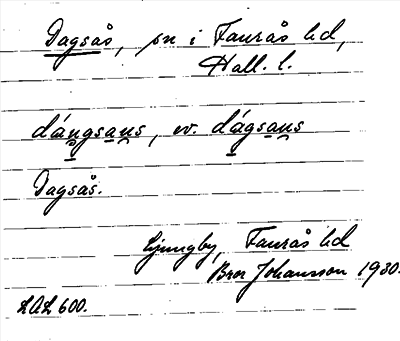 Dagsås, sn i Faurås hd,
Hall. l.
dángsans, ev. dágsans
Dagsås.
Ljungby, Faurås hd
Bror Johansson 1930.
LAL 600.